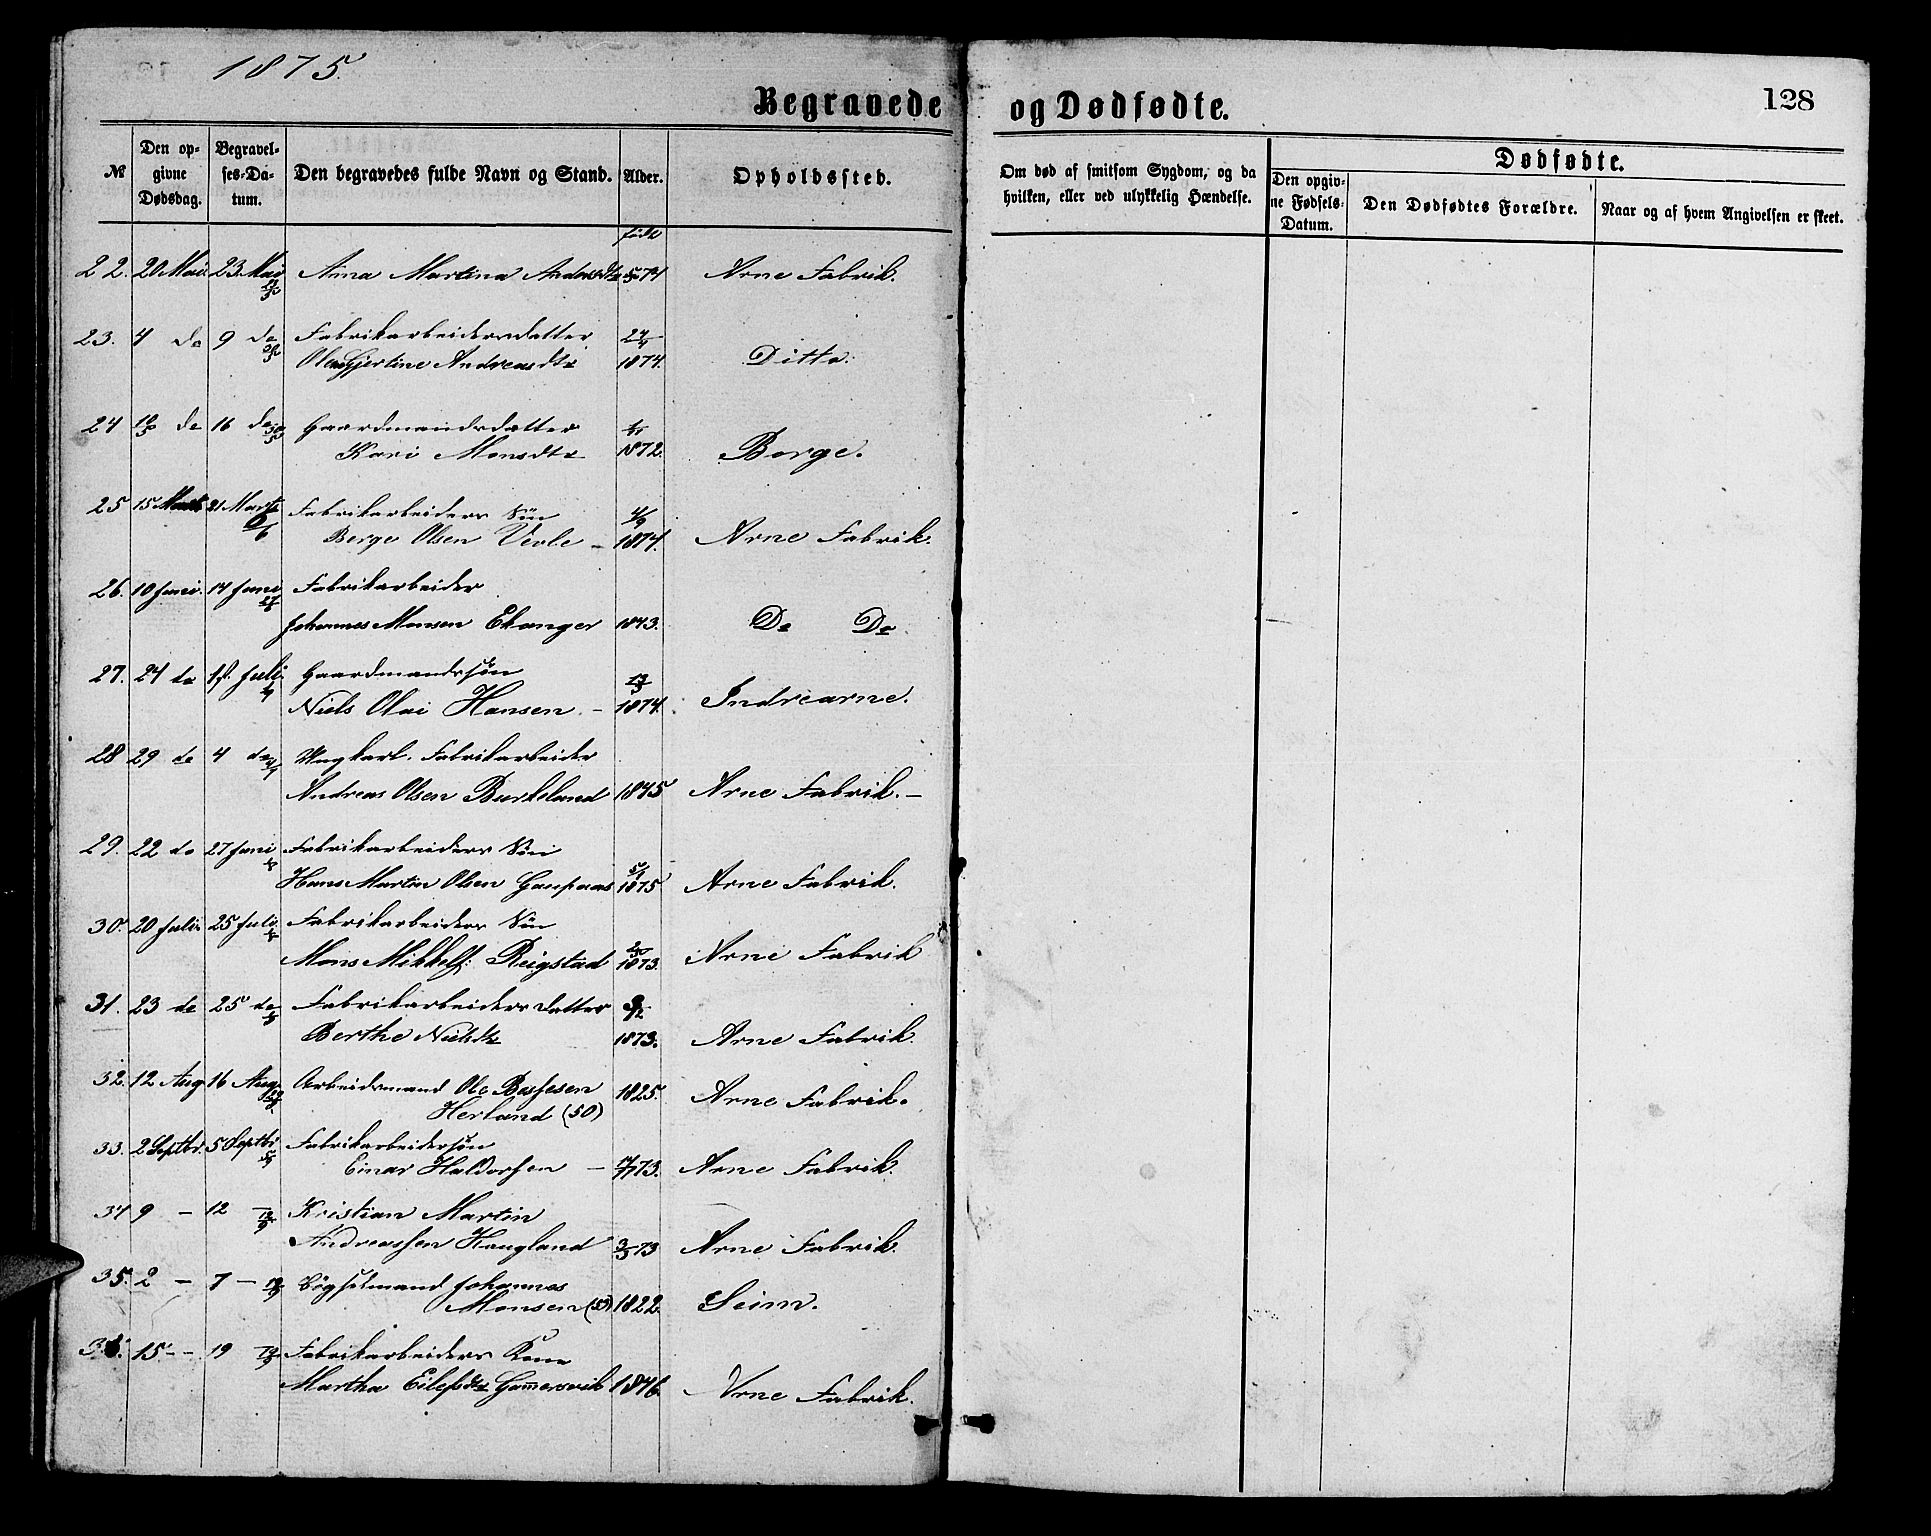 1875.
Begravede og Dødfødte. 128
№ Den opgivne Dødsdag. Begravelses-Datum. Den begravedes fulde Navn og Stand. Alder. Opholdssted. Om død af smitsom Sygdom, og da hvilken, eller ved ulykkelig Hændelse. Dødfødte.
Den opgivne Fødsels-Datum. Den Dødfødtes Forældre. Naar og af hvem Angivelsen er skeet.
født
22. 20 Mai 23. Mai Anna Martina Andersdtr 74 Arne Fabrik.
23. 4 do 9 do Fabrikarbeidersdatter
Olea Gjertine Andreasdtr 1874. Ditto.
24 do 16 do Gaardmandsdatter
Kari Monsdtr 1872. Borge.
25 15 Marts 21 Marts Fabrikarbeiders Søn
Berge Olsen Vevle – 4/9 1874. Arne Fabrik.
26. 10 Juni. 14 Juni Fabrikarbeider
Johannes Monsen Ekanger 1843. Do Do.
27. 24 do 1st Juli Gaardmandssøn
Niels Olai Hansen. – 1874. Indrearne.
28 29 do 4 do Ungkarl. Fabrikarbeider
Andreas Olsen Burkeland 1845 Arne Fabrik. –
29. 22 do 27 Juni Fabrikarbeiders Søn
Hans Martin Olsen Gaupaas 1875 Arne Fabrik.
30. 20 Juli 25 Juli Fabrikarbeiders Søn
Mons Mikkels: Reigstad 1873. Arne Fabrik
31. 23 do 25 do Fabrikarbeiders datter
Berthe Nielsdtr 1873. Arne Fabrik.
32. 12 Aug 16 Aug Arbeidsmand Ole Bessesen
Herland (50) 1825. Arne Fabrik.
33. 2 Septbr. 5 Septbr Fabrikarbeidersøn
Einar Haldorsen – 73. Arne Fabrik.
34 9 – 12 – Kristian Martin
Andreassen Haugland 3/3 73 Arne Fabrik.
35. 2 – 7 – Løgselmand Johannes
Monsen (53) 1822. Seim.
36. 15 – – 19 Fabrikarbeiders Kone
Martha Eilefsdtr Gammersvik 1846. Arne Fabrik.